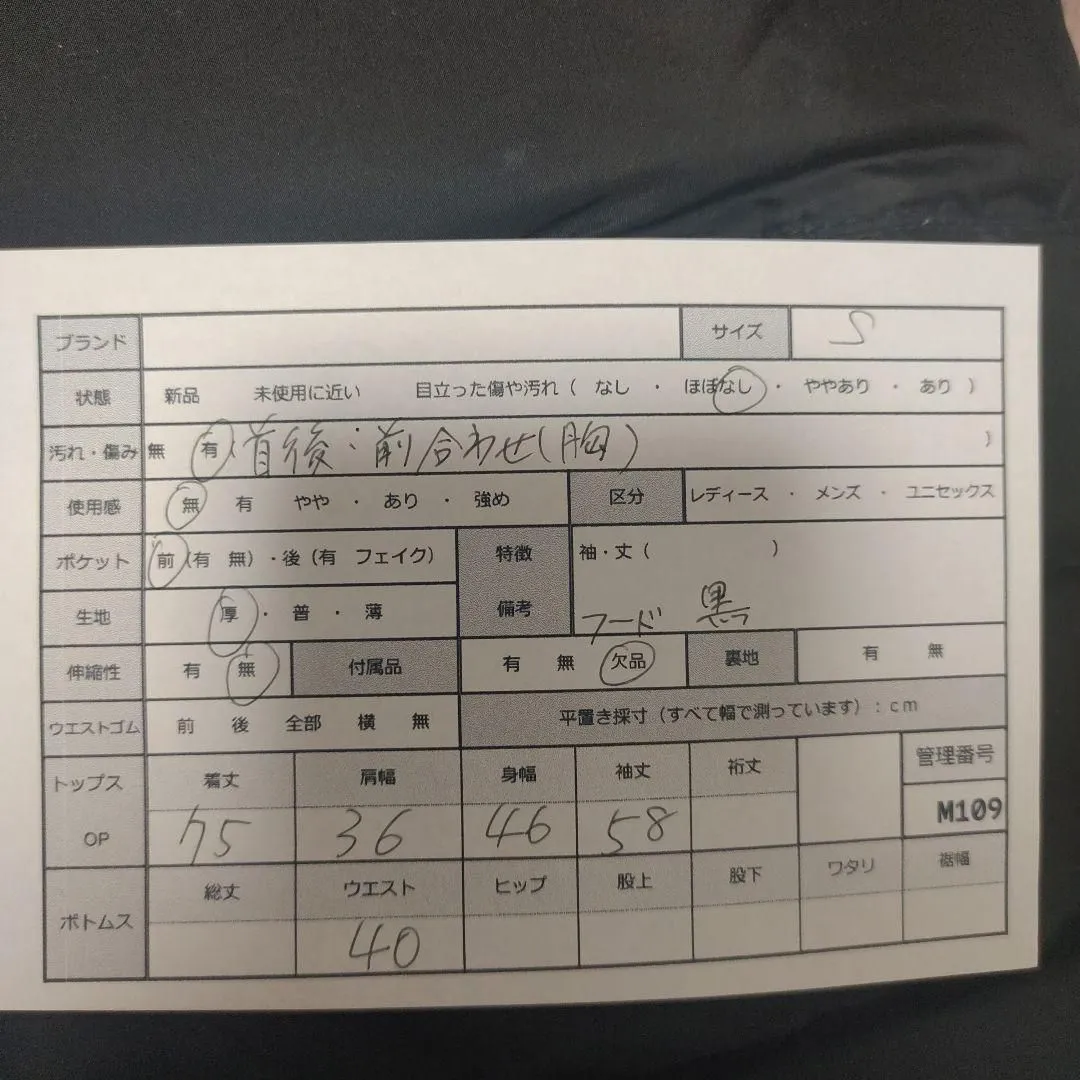 ブランド サイズ S
状態 新品 未使用に近い 目立った傷や汚れ ( なし ・ ほぼなし ・ ややあり ・ あり )
汚れ・傷み 無 有 ( 首後:前合わせ(胸) )
使用感 無 有 やや ・ あり ・ 強め 区分 レディース ・ メンズ ・ ユニセックス
ポケット 前 (有 無)・後 (有 フェイク) 特徴 袖・丈 ( )
生地 厚 ・ 普 ・ 薄 備考 フード 黒
伸縮性 有 無 付属品 有 無 欠品 裏地 有 無
ウエストゴム 前 後 全部 横 無 平置き採寸 (すべて幅で測っています) : cm
トップス 着丈 肩幅 身幅 袖丈 裄丈 管理番号
OP 75 36 46 58 M109
ボトムス 総丈 ウエスト ヒップ 股上 股下 ワタリ 裾幅
40